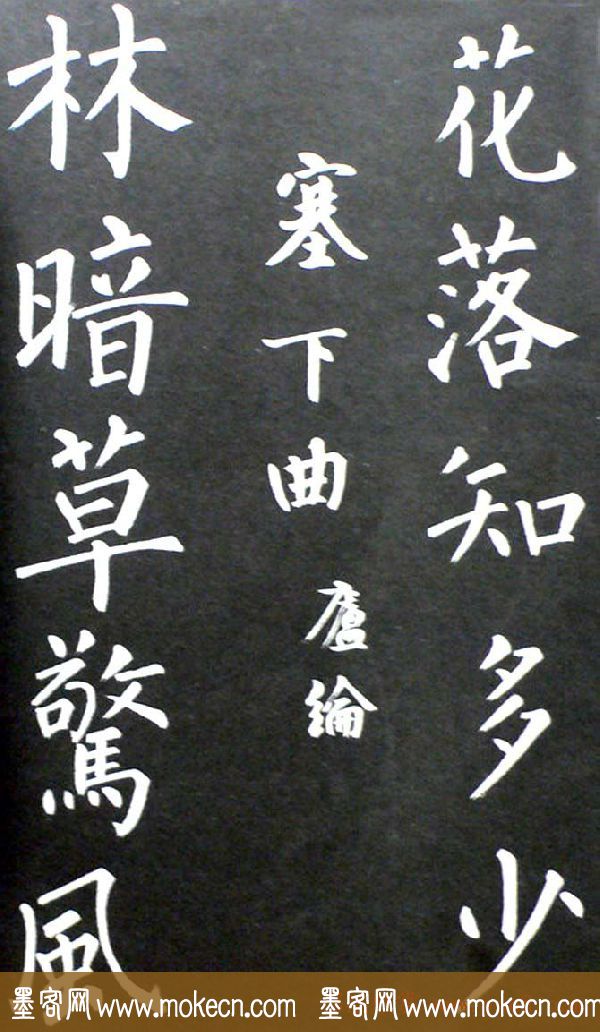 花落知多少
塞下曲
廬綸
林暗草驚風
墨客网 www.mokecn.com 墨客网 www.mokecn.com